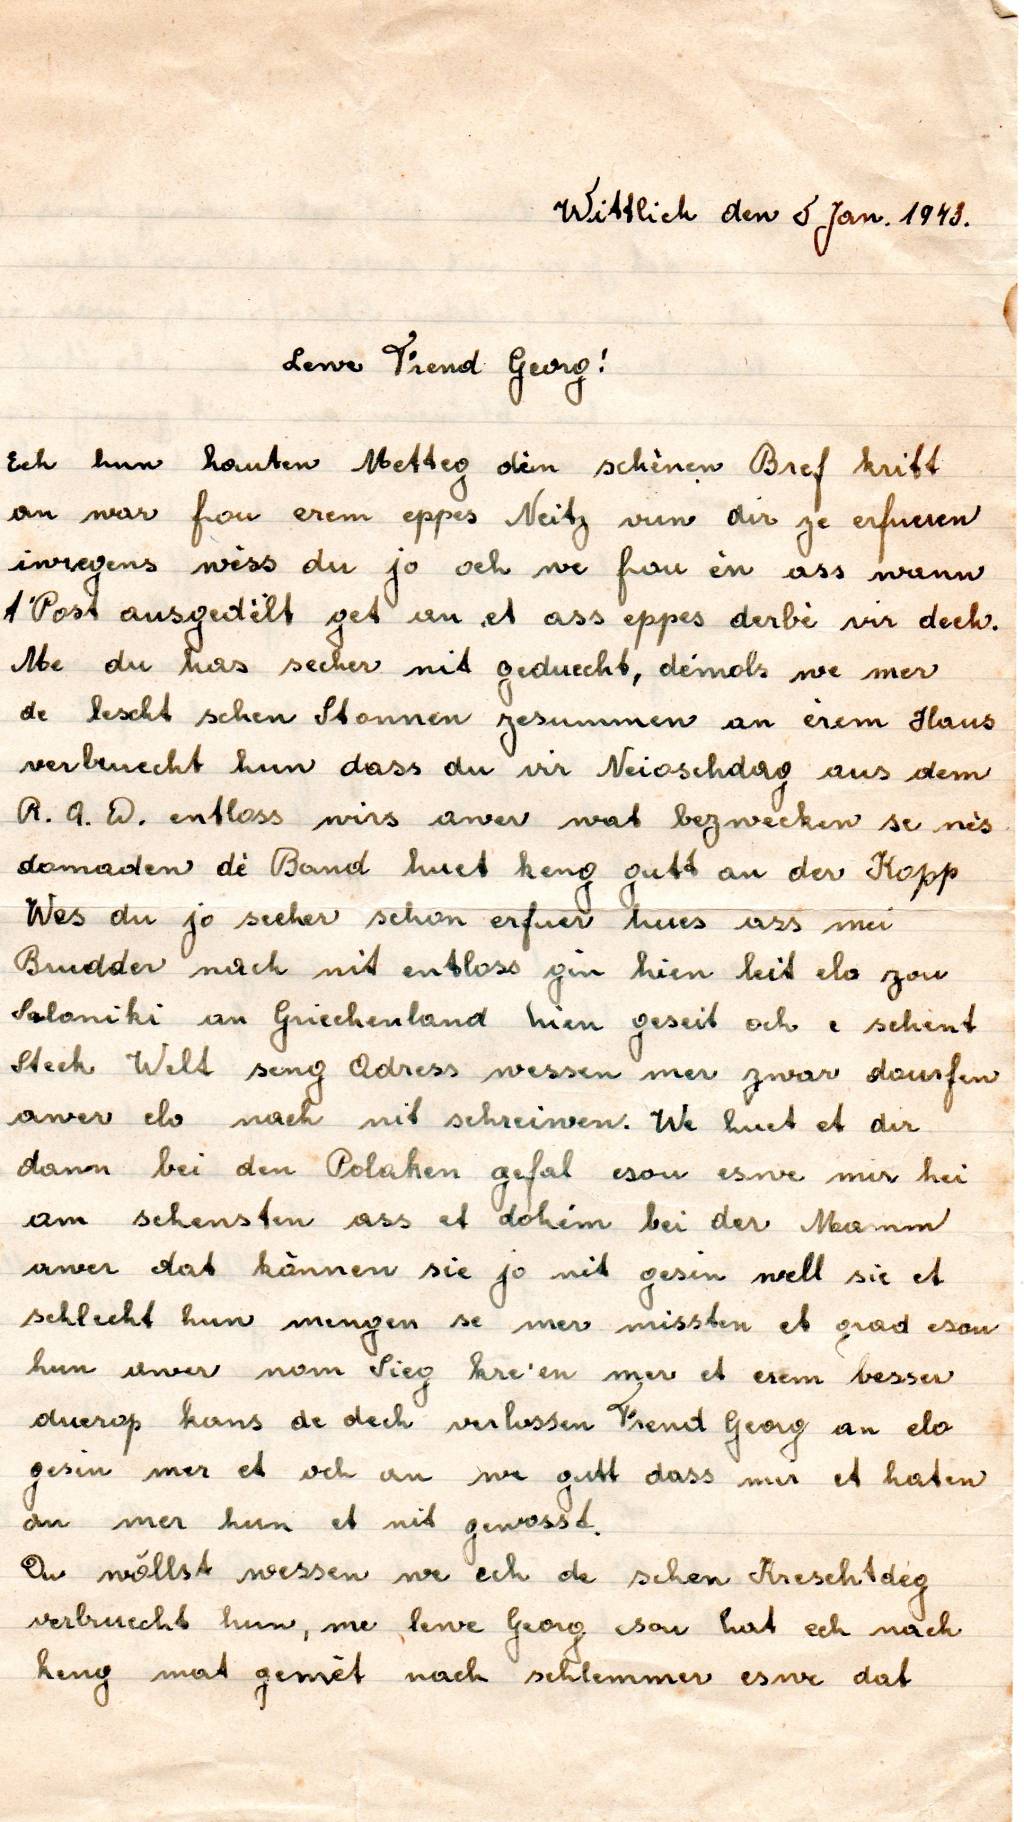 Wittlich den 5 Jan. 1943.
Lewe Frend Georg!
Ech hun hauten Metteg dèn schènen Bref kritt
an war frou erem eppes Neitz vun dir ze erfueren
iwregens wèss du jo och we frou èn ass wann
t'Post ausgedèlt get an et ass eppes derbè vir dech.
Me du has secher nit geduecht, démols we mer
de lescht schen Stonnen zesummen an èrem Haus
verbruecht hun dass du vir Neioschdag aus dem
R. A. D. entloss wirs awer wat bezwecken se nès
domaden dè Band huet keng gutt an der Kopp
Wes du jo secher schon erfuer hues ass mei
Brudder nach nit entloss gin hien leit elo zou
Saloniki an Griechenland hien geseit och e schent
Steck Welt seng Adress wessen mer zwar dourfen
awer elo nach nit schreiwen. We huet et dir
dann bei den Polaken gefal esou eswe mir hei
am schensten ass et dohém bei der Mamm
awer dat kànnen sie jo nit gesin well sie et
schlecht hun mengen se mer missten et grad esou
hun awer nom Sieg kre'en mer et erem besser
duerop kans de dech verlossen Frend Georg an elo
gesin mer et och an we gutt dass mir et haten
an mer hun et nit gewosst.
Du wöllst wessen we ech de schen Kreschtdég
verbruecht hun, me lewe Georg esou hat ech nach
keng mat gemèt nach schlemmer eswe dat